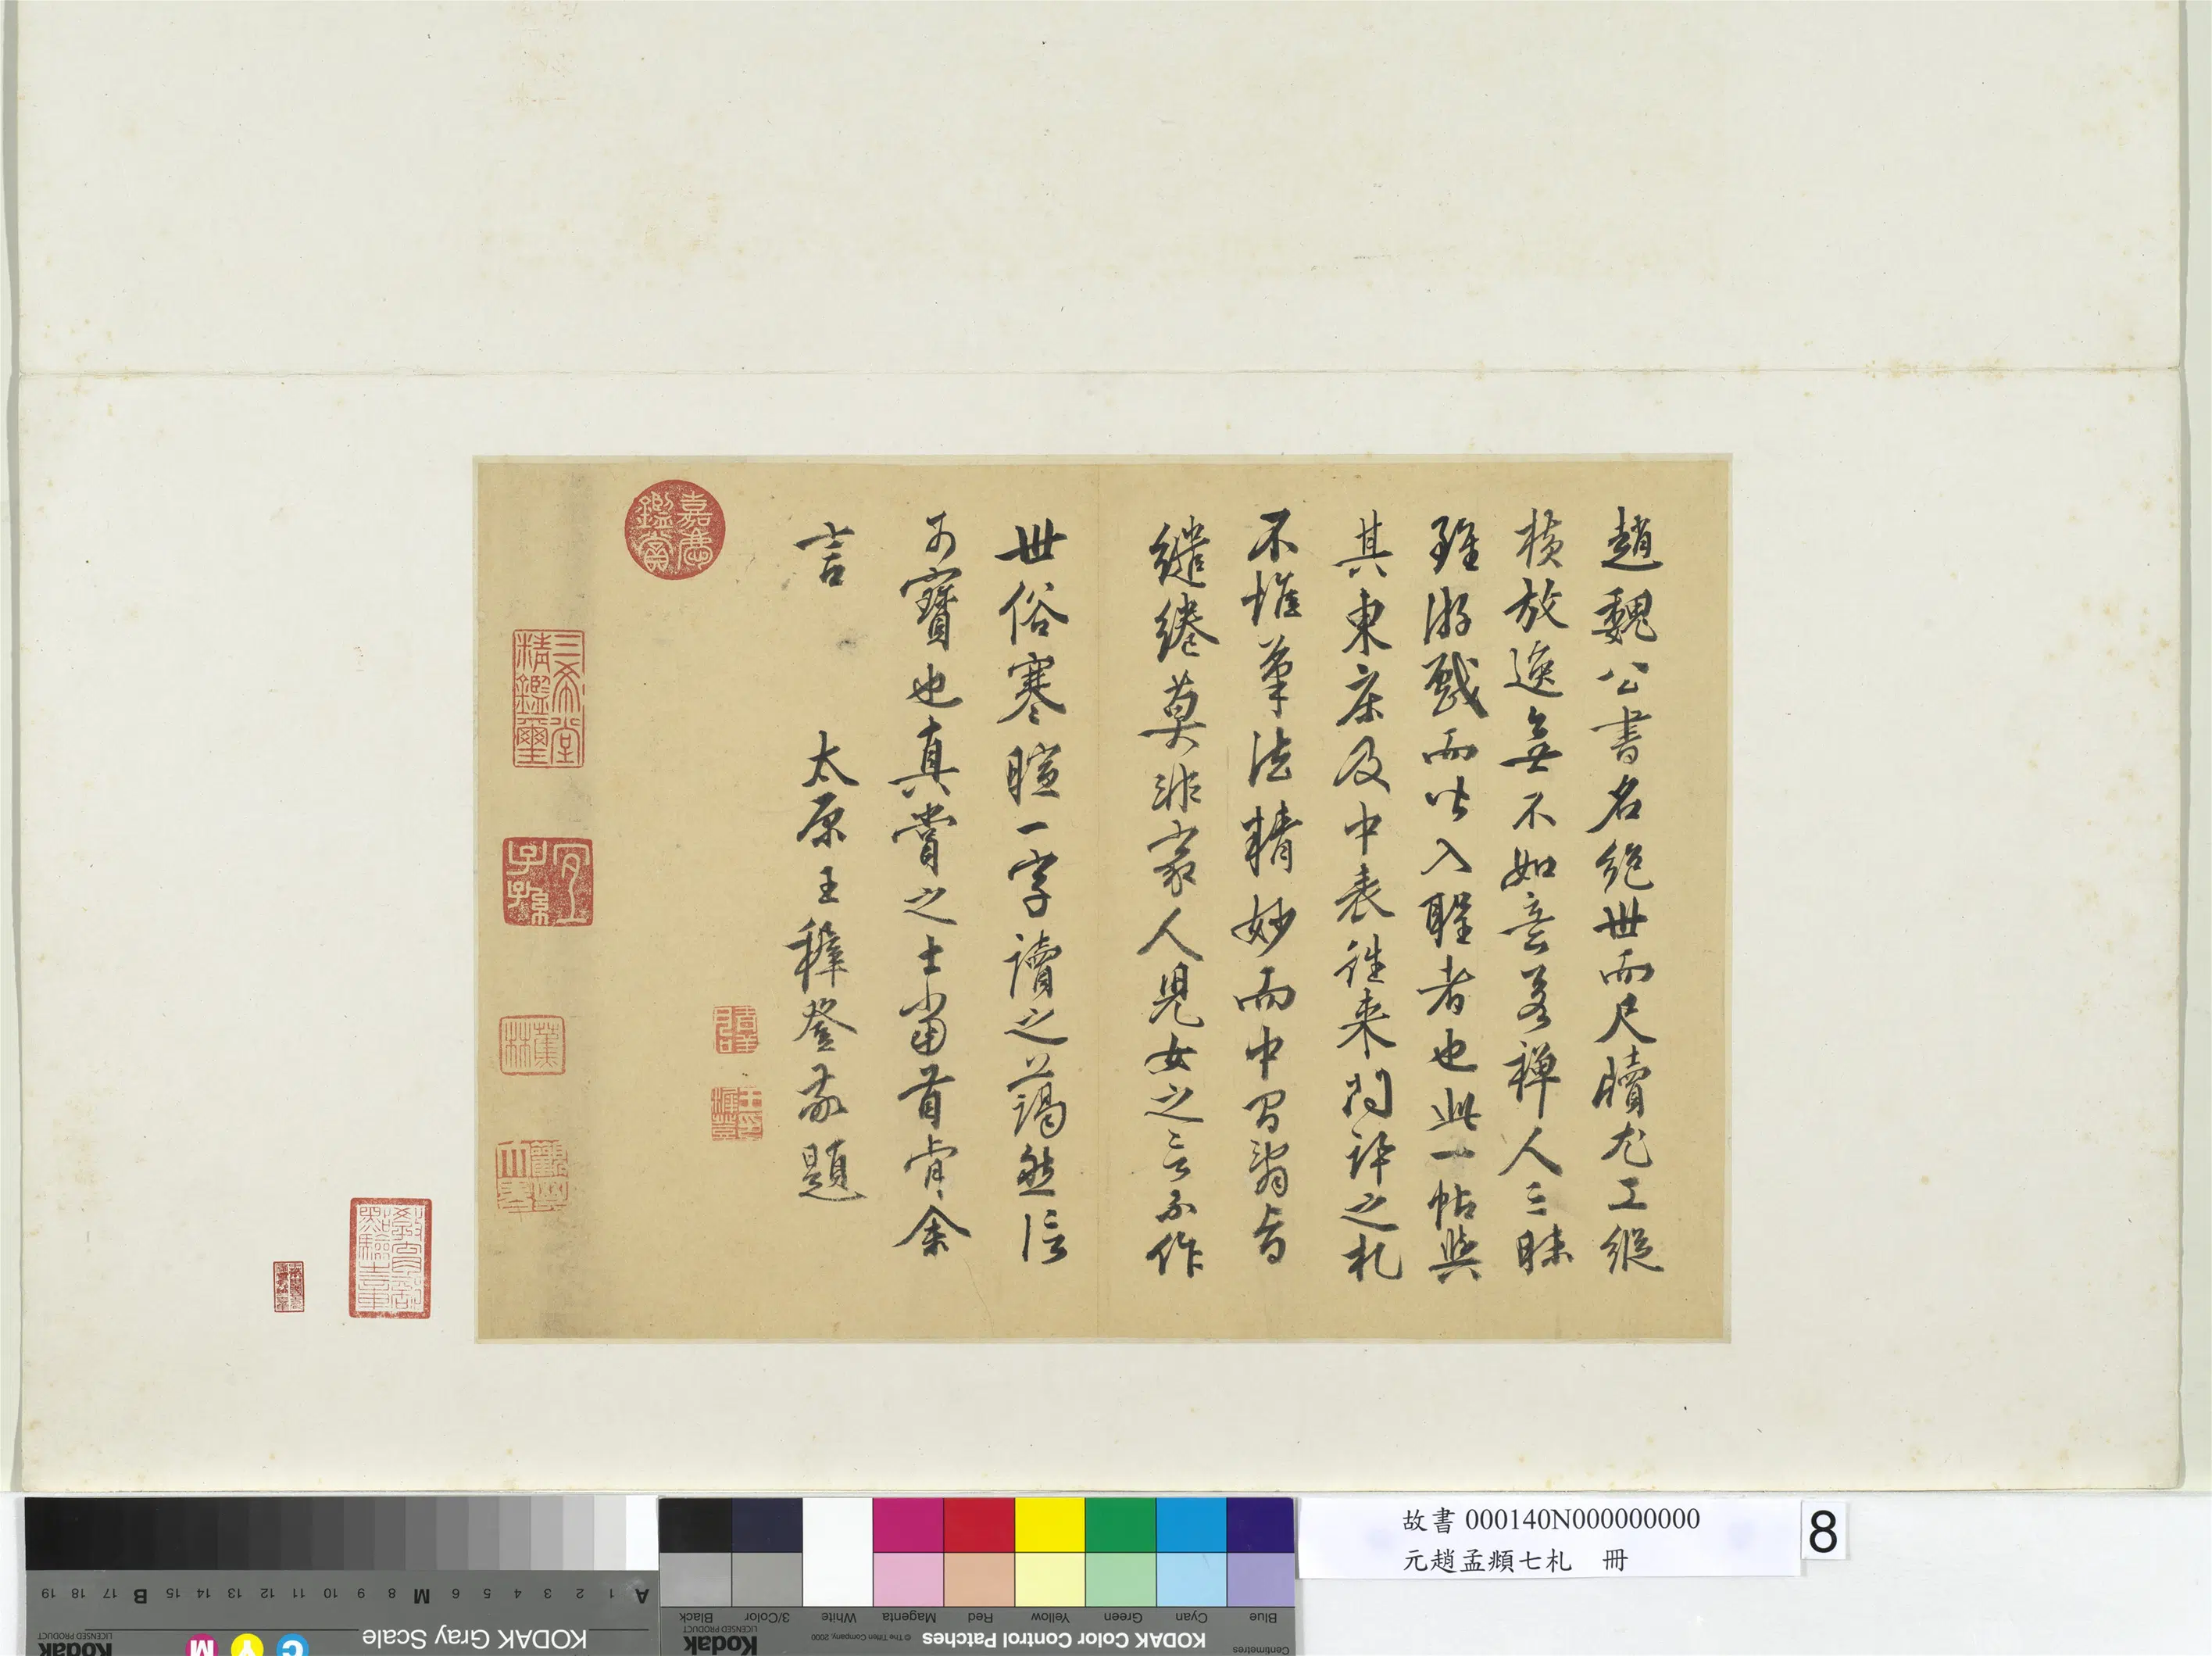 趙魏公書名絕世而尺牘尤工縱
橫放逸無不如意若禪人三昧
雖游戲而皆入聖者也此一帖與
其東床及中表往来問訊之札
不惟筆法精妙而中間語皆
繾綣莫非家人兒女之言不作
世俗寒暄一字讀之藹然信
可寶也真賞之士當首肯余
言
太原王穉登敬題
嘉慶鑑賞
三希堂精鑑璽
宜子孫
蕉林
觀其大略
教育部點驗之章
故書 000140N000000000
元趙孟頫七札 冊
8
A 1 2 3 4 5 6 M 8 9 10 11 12 13 14 15 B 17 18 19
KODAK Gray Scale
C Y M
Kodak
LICENSED PRODUCT
Blue Cyan Green Yellow Red Magenta White 3/Color Black
Centimetres
KODAK Color Control Patches
© The Tiffen Company, 2000
Kodak
LICENSED PRODUCT